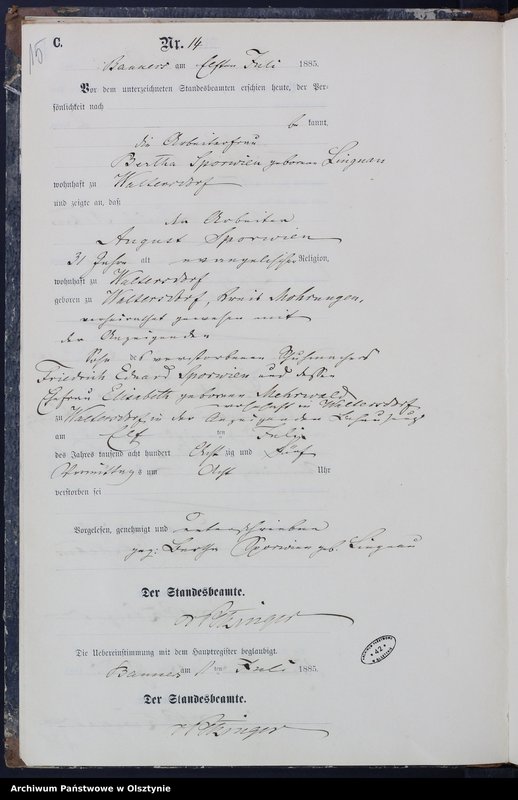 15
C.
Nr. 14
Banners am Elften Juli 1885.
Vor dem unterzeichneten Standesbeamten erschien heute, der Per-
sönlichkeit nach
be kannt,
die Arbeiterfrau
Bertha Sporwien geborene Lingnau
wohnhaft zu Waltersdorf
und zeigte an, daß
der Arbeiter
August Sporwien
31 Jahre alt evangelischer Religion,
wohnhaft zu Waltersdorf
geboren zu Waltersdorf, Kreis Mohrungen,
verheirathet gewesen mit
der Anzeigenden
Sohn des verstorbenen Schuhmachers
Friedrich Eduard Sporwien und dessen
Ehefrau Elisabeth geborene Mehrwald
in Waltersdorf
zu Waltersdorf, in der Anzeigenden Behausung
am Elf ten Juli
des Jahres tausend acht hundert Acht zig und Fünf
Vormittags um Acht Uhr
verstorben sei
Vorgelesen, genehmigt und unterschrieben
gez: Bertha Sporwien geb. Lingnau
Der Standesbeamte.
Die Uebereinstimmung mit dem Hauptregister beglaubigt.
Banners am ten Juli 1885.
Der Standesbeamte.
42
Archiwum Państwowe w Olsztynie